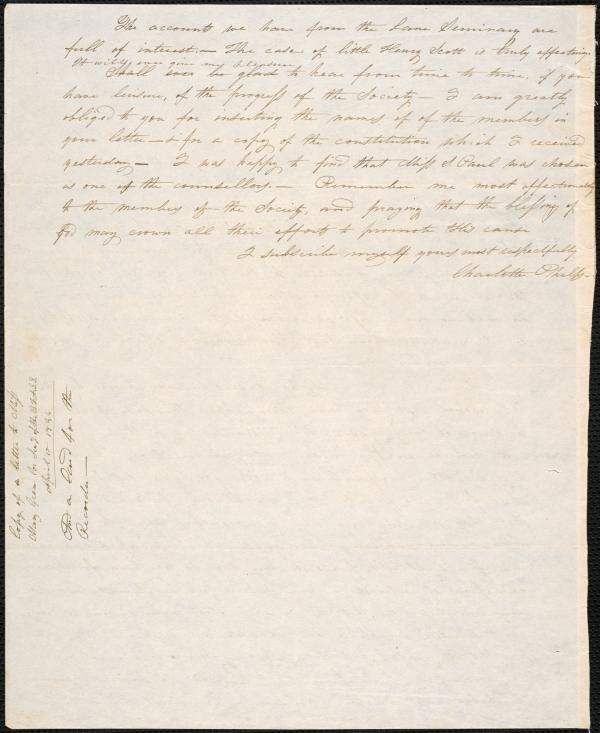 The account we have from the Lane Seminary are
full of interest — The case of little Henry Scott is truly affecting.
It will ever give my pleasure
Shall ever be glad to hear from time to time, if you
have leisure, of the progress of the Society — I am greatly
obliged to you for inserting the names of of the members in
your letter — & for a copy of the constitution which I received
yesterday — I was happy to find that Miss S Paul was chosen
as one of the counsellors. — Remember me most affectionately
to the members of the Society, and praying that the blessing of
God may crown all their efforts to promote this cause
I subscribe myself yours most respectfully
Charlotte Phelps —
Copy of a letter to Miss
Mary Green Cor. Sec. of the
April 10 1834
And a Card for the
Recorder —